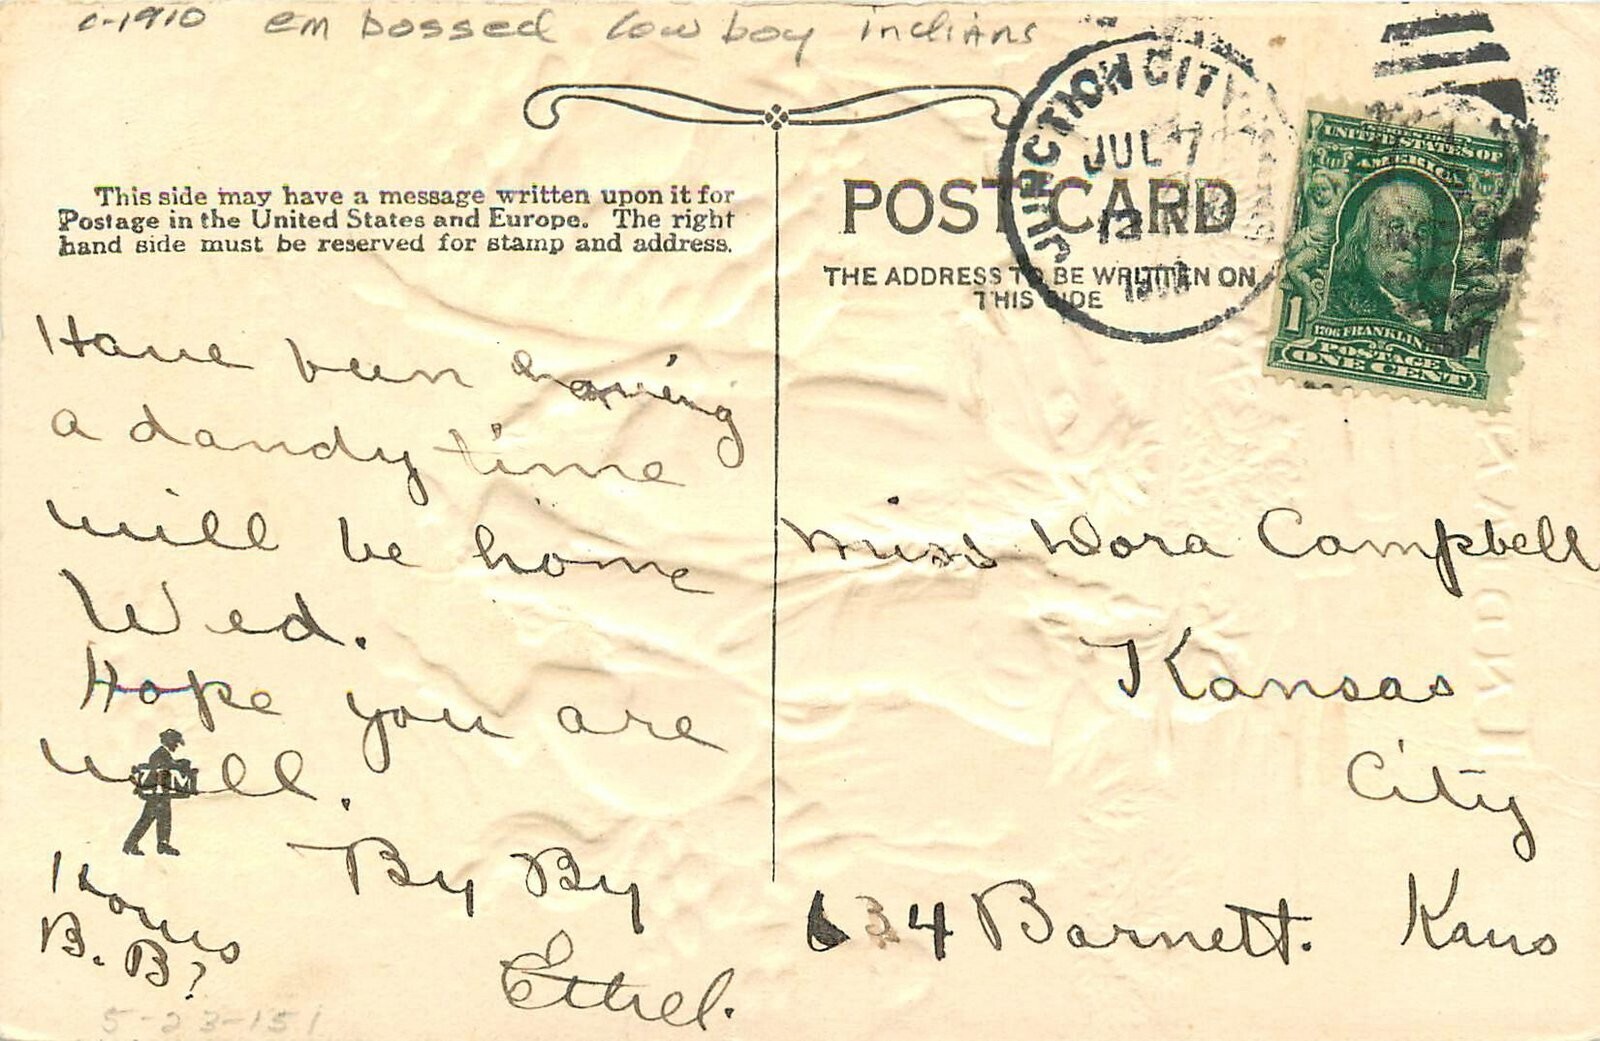 c-1910 embossed cowboy indians
This side may have a message written upon it for
Postage in the United States and Europe. The right
hand side must be reserved for stamp and address.
Have been having
a dandy time
will be home
Wed.
Hope you are
well.
ZIM
By By
Ethel.
B. B?
5-23-151
POST CARD
THE ADDRESS TO BE WRITTEN ON
THIS SIDE
JUNCTION CITY
JUL 7
UNITED STATES OF
AMERICA
1706 FRANKLIN
POSTAGE
1
ONE CENT
Miss Dora Campbell
Kansas
City
634 Barnett. Kans